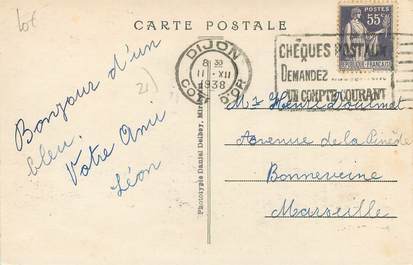 lot
CARTE POSTALE
POSTES
55c
REPUBLIQUE FRANÇAISE
DIJON
8 30
11 - XII
1938
COTE D'OR
CHÈQUES POSTAUX
DEMANDEZ
UN COMPTE COURANT
Bonjour d'un
bleu.
Votre Ami
Léon
Phototypie Daniel Delboy, Mir
Avenue de la Pinède
Bonneveine
Marseille